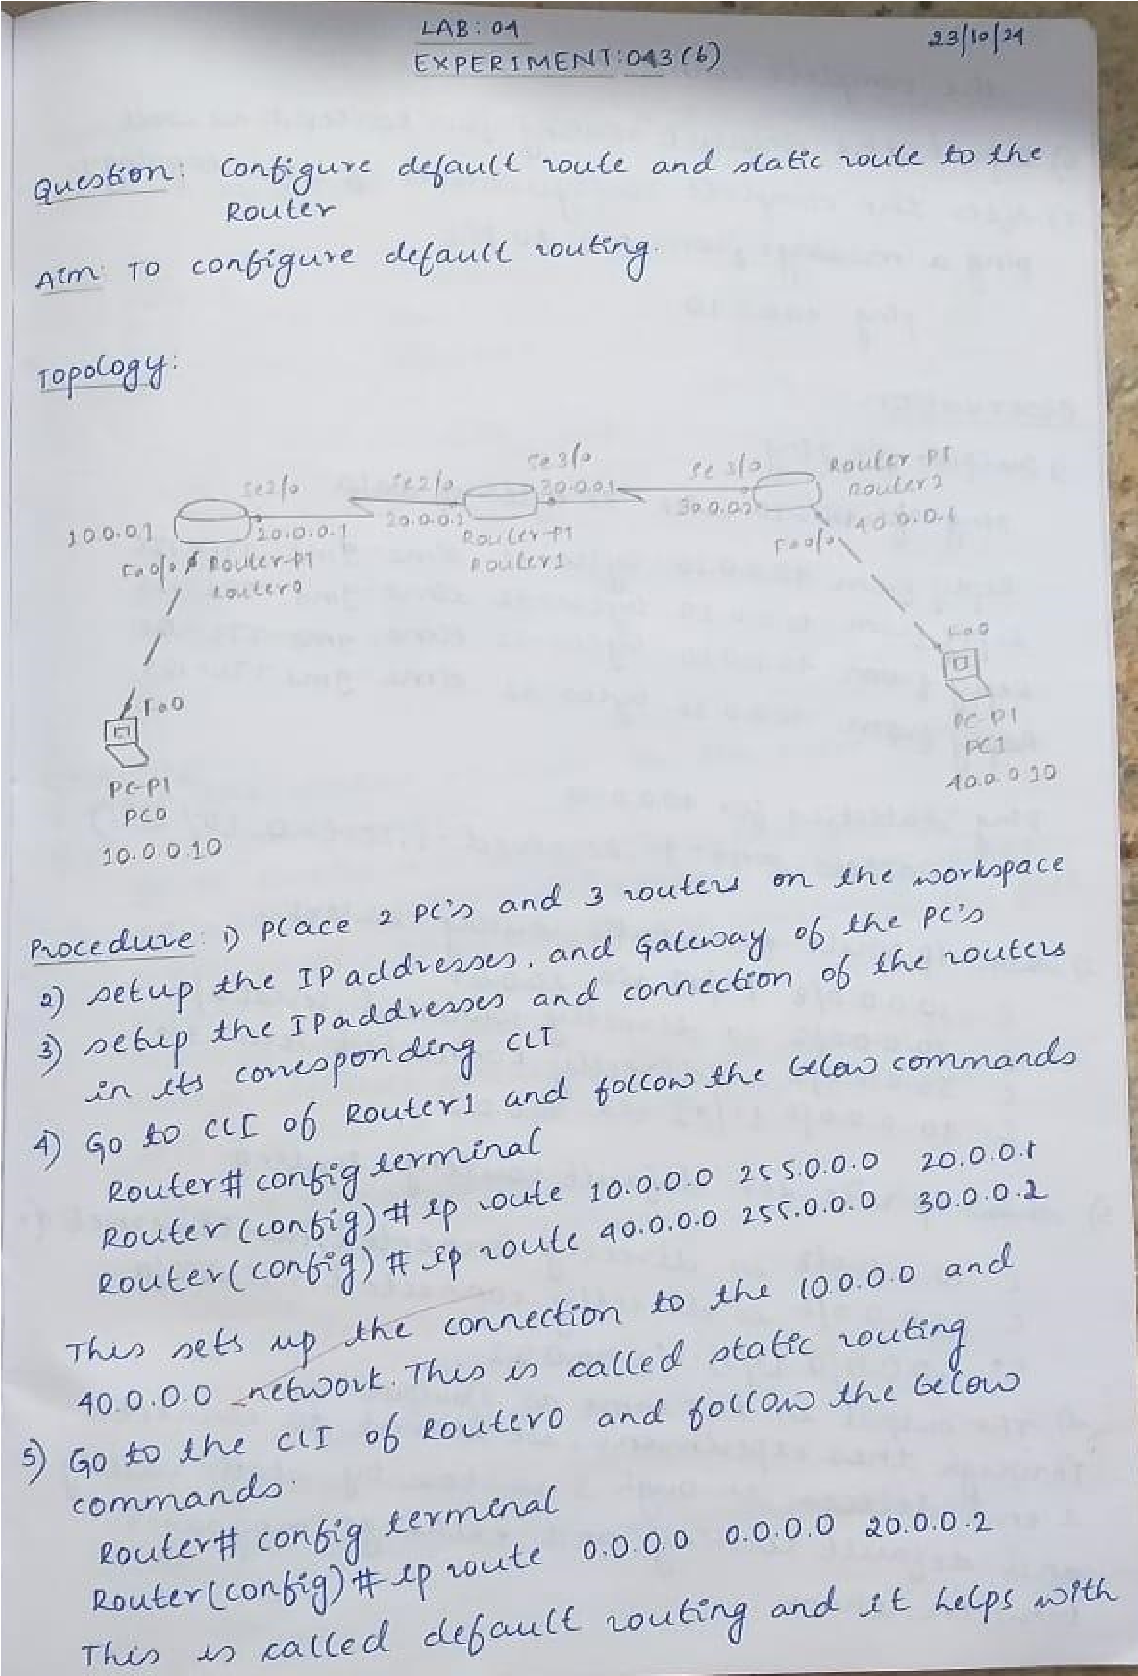 LAB: 04
23/10/24
EXPERIMENT: 043(b)
Question: Configure default route and static route to the
Router
Aim: To configure default routing.
Topology:
Se3/0
Se2/0 Se2/0 30.0.0.1 Se 3/0 Router-PT
Router2
10.0.0.1 20.0.0.1 20.0.0.2 30.0.0.2 40.0.0.1
Fa0/0 Router-PT Router-PT Fa0/0
Router0 Router1
Fa0
Fa0
PC-PT
PC1
40.0.0.10
PC-PT
PC0
10.0.0.10
Procedure: 1) Place 2 PC's and 3 routers on the workspace
2) setup the IP addresses, and Gateway of the PC's
3) setup the IP addresses and connection of the routers
in its corresponding CLI
4) Go to CLI of Router1 and follow the below commands
Router# config terminal
Router(config)# ip route 10.0.0.0 255.0.0.0 20.0.0.1
Router(config)# ip route 40.0.0.0 255.0.0.0 30.0.0.2
This sets up the connection to the 10.0.0.0 and
40.0.0.0 network. This is called static routing
5) Go to the CLI of Router0 and follow the below
commands.
Router# config terminal
Router(config)# ip route 0.0.0.0 0.0.0.0 20.0.0.2
This is called default routing and it helps with